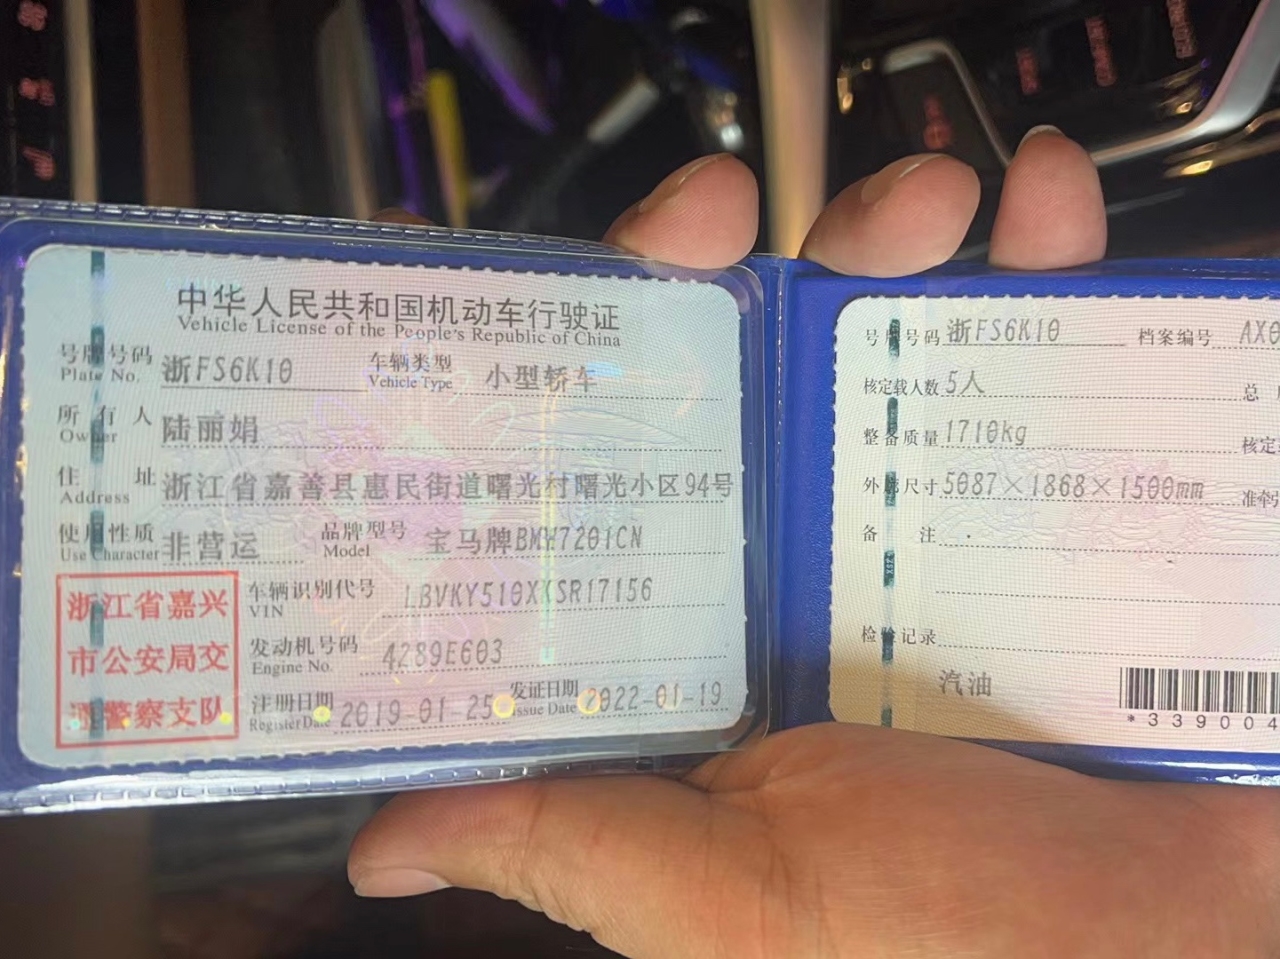 中华人民共和国机动车行驶证
Vehicle License of the People's Republic of China
号牌号码 浙FS6K10 车辆类型 小型轿车
Plate No. Vehicle Type
所有人 陆丽娟
Owner
住址 浙江省嘉善县惠民街道曙光村曙光小区94号
Address
使用性质 非营运 品牌型号 宝马牌BMW7201CN
Use Character Model
浙江省嘉兴
市公安局交
通警察支队
车辆识别代号 LBVKY510XKSR17156
VIN
发动机号码 4289E603
Engine No.
注册日期 2019-01-25 发证日期 2022-01-19
Register Date Issue Date
号牌号码 浙FS6K10 档案编号
核定载人数 5人 总
整备质量 1710kg 核定
外廓尺寸 5087×1868×1500mm 准牵
备注
检验记录
汽油
*339004